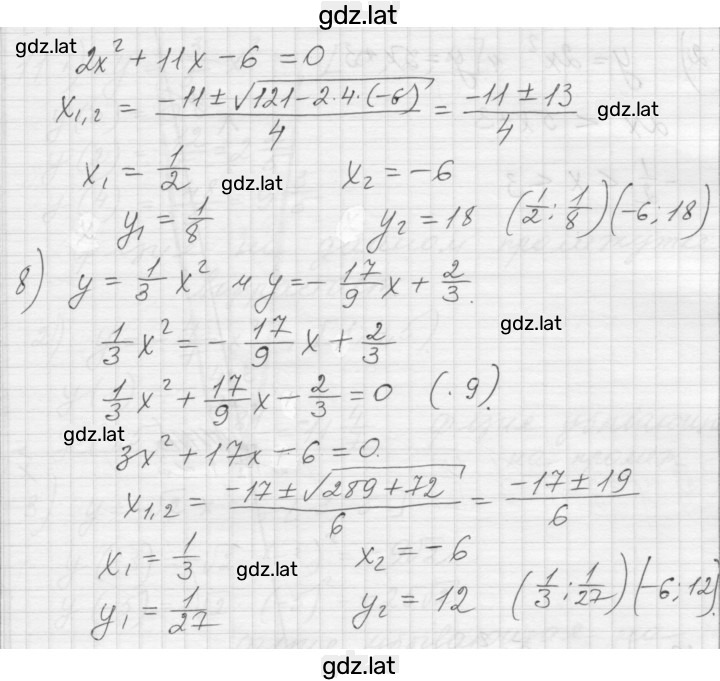 gdz.lat
gdz.lat
2x² + 11x − 6 = 0
x₁,₂ = (−11 ± √(121 − 2·4·(−6)))/4 = (−11 ± 13)/4
gdz.lat
x₁ = 1/2 x₂ = −6
gdz.lat
y₁ = 1/8 y₂ = 18 (1/2; 1/8) (−6; 18)
8) y = 1/3 x² и y = − 17/9 x + 2/3.
gdz.lat
1/3 x² = − 17/9 x + 2/3
1/3 x² + 17/9 x − 2/3 = 0 (·9).
gdz.lat
3x² + 17x − 6 = 0.
x₁,₂ = (−17 ± √(289 + 72))/6 = (−17 ± 19)/6
x₁ = 1/3 x₂ = −6
gdz.lat
y₁ = 1/27 y₂ = 12 (1/3; 1/27) (−6; 12).
gdz.lat